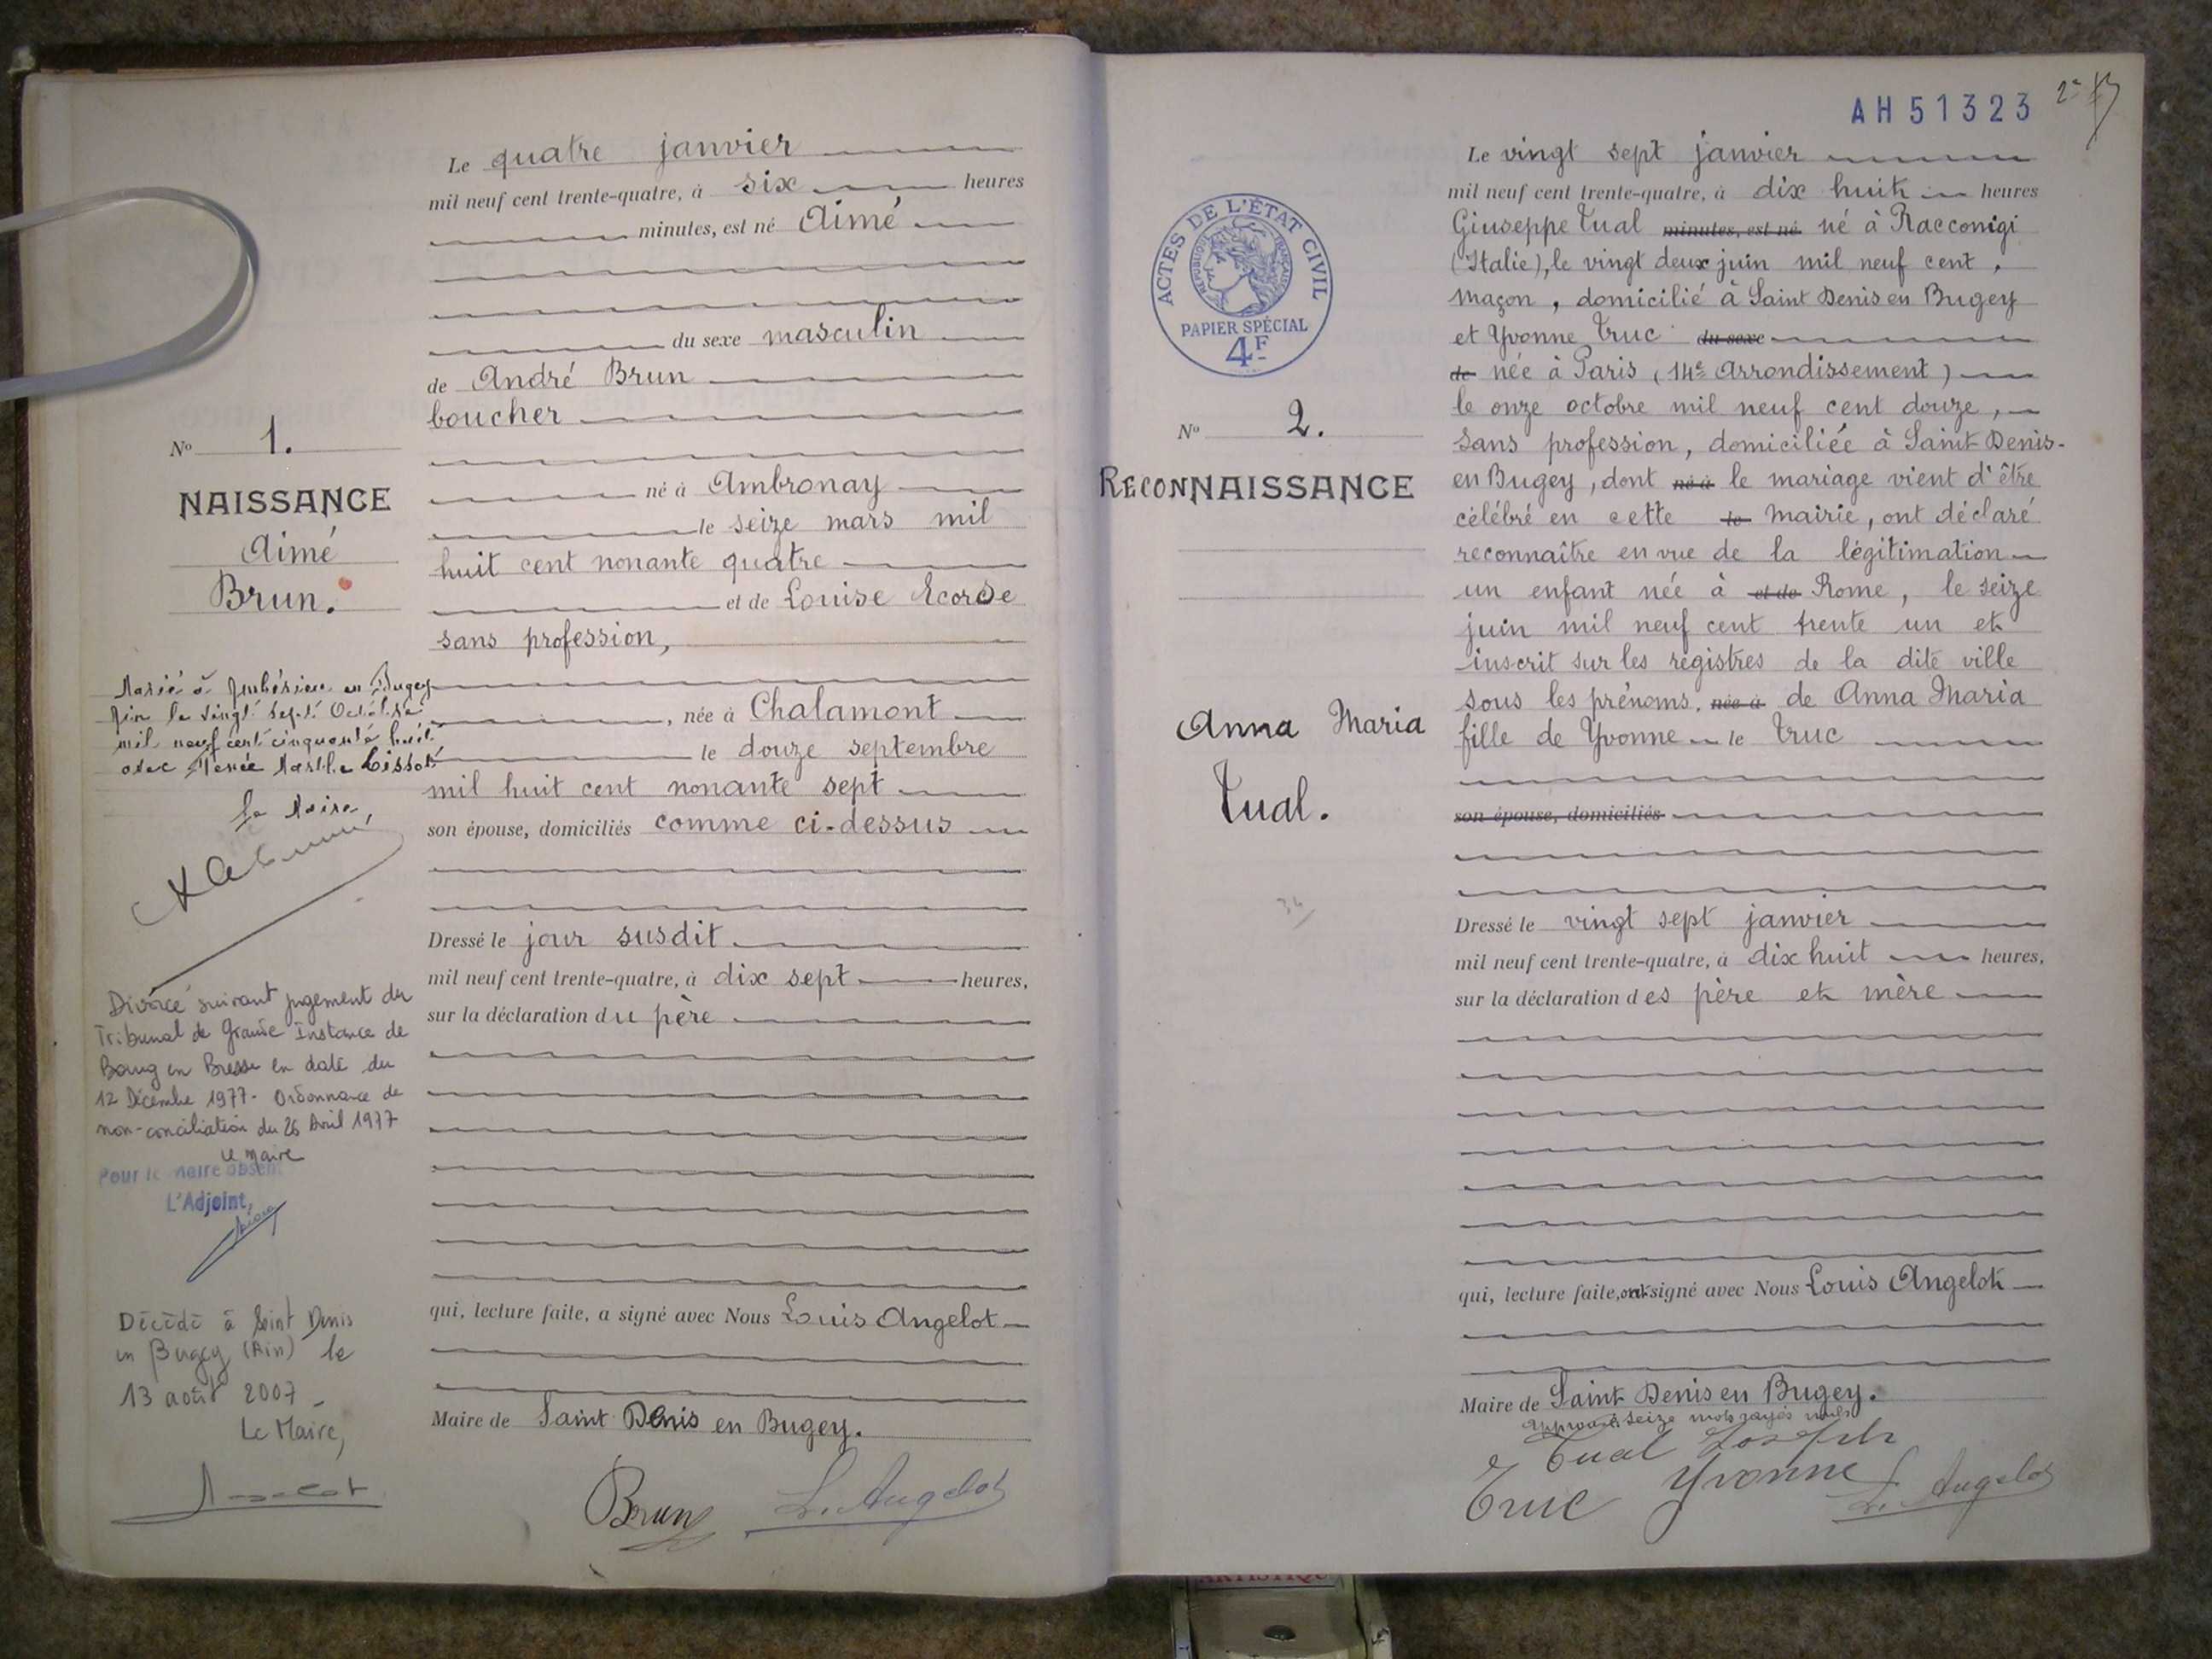 Le quatre janvier
mil neuf cent trente-quatre, à six heures
minutes, est né Aimé
du sexe masculin
de André Brun
boucher
né à Ambronay
le seize mars mil
huit cent nonante quatre
et de Louise Ecorse
sans profession,
, née à Chalamont
le douze septembre
mil huit cent nonante sept
son épouse, domiciliés comme ci-dessus
Dressé le jour susdit
mil neuf cent trente-quatre, à dix sept heures,
sur la déclaration du père
qui, lecture faite, a signé avec Nous Louis Angelot
Maire de Saint Denis en Bugey.
Brun L. Angelot
No 1.
NAISSANCE
Aimé
Brun.
Marié à Ambérieu en Bugey
Ain le vingt sept Octobre
mil neuf cent cinquante huit
avec Marthe
Le Maire,
Divorcé suivant jugement du
Tribunal de Grande Instance de
Bourg en Bresse en date du
12 Décembre 1977. Ordonnance de
non-conciliation du 26 Avril 1977
Le Maire
Pour le maire absent
L'Adjoint,
Décédé à Saint Denis
en Bugey (Ain) le
13 août 2007
Le Maire,
AH51323
2e
ACTES DE L'ÉTAT CIVIL
RÉPUBLIQUE FRANÇAISE
PAPIER SPÉCIAL
4F
No 2.
RECONNAISSANCE
Anna Maria
Tual.
34
Le vingt sept janvier
mil neuf cent trente-quatre, à dix huit heures
Giuseppe Tual minutes, est né né à Racconigi
(Italie), le vingt deux juin mil neuf cent,
maçon, domicilié à Saint Denis en Bugey
et Yvonne Truc du sexe
de née à Paris (14e Arrondissement)
le onze octobre mil neuf cent douze,
sans profession, domiciliée à Saint Denis-
en Bugey, dont né à le mariage vient d'être
célébré en cette le mairie, ont déclaré
reconnaître en vue de la légitimation
un enfant née à et de Rome, le seize
juin mil neuf cent trente un et
inscrit sur les registres de la dite ville
sous les prénoms. née à de Anna Maria
fille de Yvonne le Truc
son épouse, domiciliés
Dressé le vingt sept janvier
mil neuf cent trente-quatre, à dix huit heures,
sur la déclaration des père et mère
qui, lecture faite, ont signé avec Nous Louis Angelot
Maire de Saint Denis en Bugey.
Approuvé seize mots rayés nuls
Tual Joseph
Truc Yvonne L. Angelot
ARTISTIQU